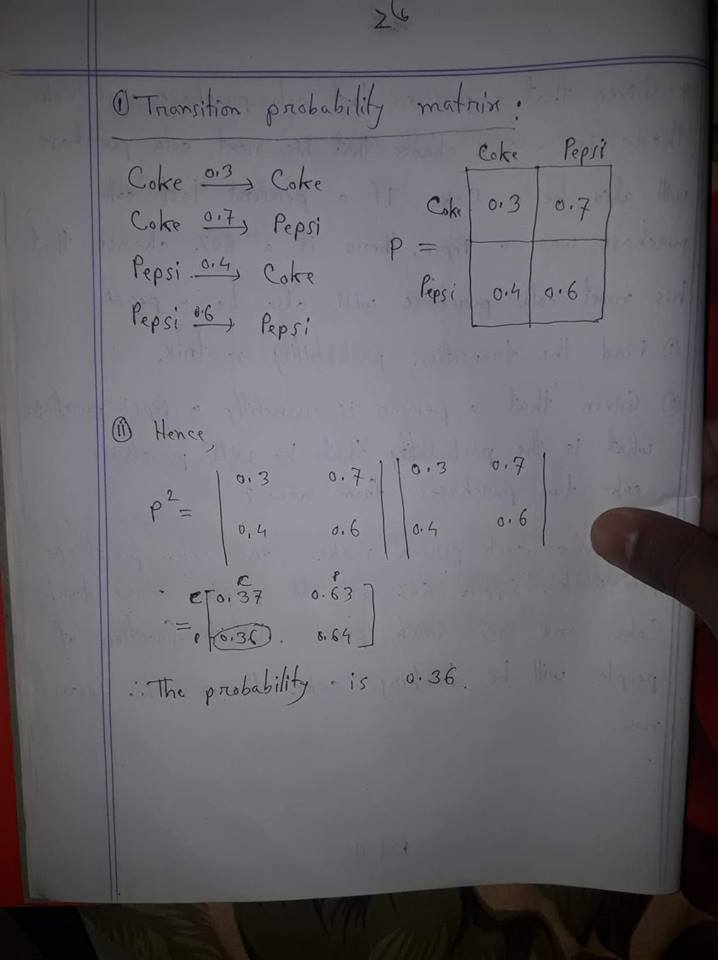 26
① Transition probability matrix:
Coke 0.3→ Coke
Coke 0.7→ Pepsi
Pepsi 0.4→ Coke
Pepsi 0.6→ Pepsi
Coke Pepsi
Coke 0.3 0.7
P =
Pepsi 0.4 0.6
ⅱ Hence,
P² = | 0.3 0.7 | | 0.3 0.7 |
| 0.4 0.6 | | 0.4 0.6 |
C P
= C [ 0.37 0.63 ]
P [ 0.36 . 0.64 ]
∴ The probability is 0.36.